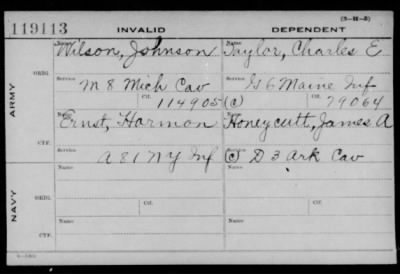 (3-11-3)
119113 INVALID DEPENDENT
ARMY
ORIG.
Name Wilson, Johnson Name Taylor, Charles E
Service M 8 Mich Cav Service G 6 Maine Inf
Ctf. 114905 (c) Ctf. 79064
CTF.
Name Ernst, Harmon Name Honeycutt, James A
Service A 81 NY Inf Service (c) D 3 Ark Cav
NAVY
ORIG.
Name Name
Service Service
Ctf. Ctf.
CTF.
Name Name
Service Service